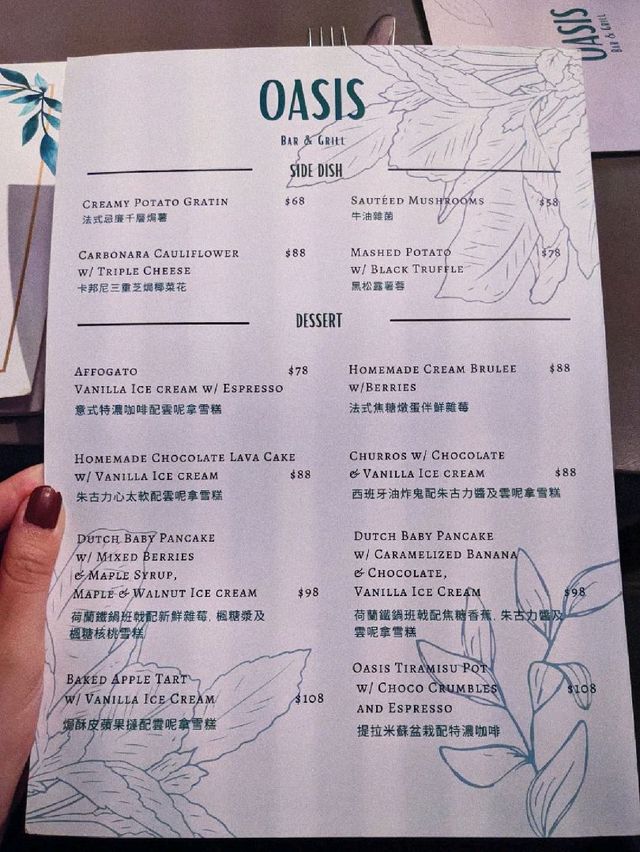 OASIS
BAR & GRILL
OASIS
BAR & GRILL
SIDE DISH
CREAMY POTATO GRATIN $68
法式忌廉千層焗薯
SAUTÉED MUSHROOMS $58
牛油雜菌
CARBONARA CAULIFLOWER $88
W/ TRIPLE CHEESE
卡邦尼三重芝焗椰菜花
MASHED POTATO $78
W/ BLACK TRUFFLE
黑松露薯蓉
DESSERT
AFFOGATO $78
VANILLA ICE CREAM W/ ESPRESSO
意式特濃咖啡配雲呢拿雪糕
HOMEMADE CREAM BRULEE $88
W/BERRIES
法式焦糖燉蛋伴鮮雜莓
HOMEMADE CHOCOLATE LAVA CAKE
W/ VANILLA ICE CREAM $88
朱古力心太軟配雲呢拿雪糕
CHURROS W/ CHOCOLATE
& VANILLA ICE CREAM $88
西班牙油炸鬼配朱古力醬及雲呢拿雪糕
DUTCH BABY PANCAKE
W/ MIXED BERRIES
& MAPLE SYRUP,
MAPLE & WALNUT ICE CREAM $98
荷蘭鐵鍋班戟配新鮮雜莓, 楓糖漿及
楓糖核桃雪糕
DUTCH BABY PANCAKE
W/ CARAMELIZED BANANA
& CHOCOLATE,
VANILLA ICE CREAM $98
荷蘭鐵鍋班戟配焦糖香蕉, 朱古力醬及
雲呢拿雪糕
BAKED APPLE TART
W/ VANILLA ICE CREAM $108
焗酥皮蘋果撻配雲呢拿雪糕
OASIS TIRAMISU POT
W/ CHOCO CRUMBLES $108
AND ESPRESSO
提拉米蘇盆栽配特濃咖啡